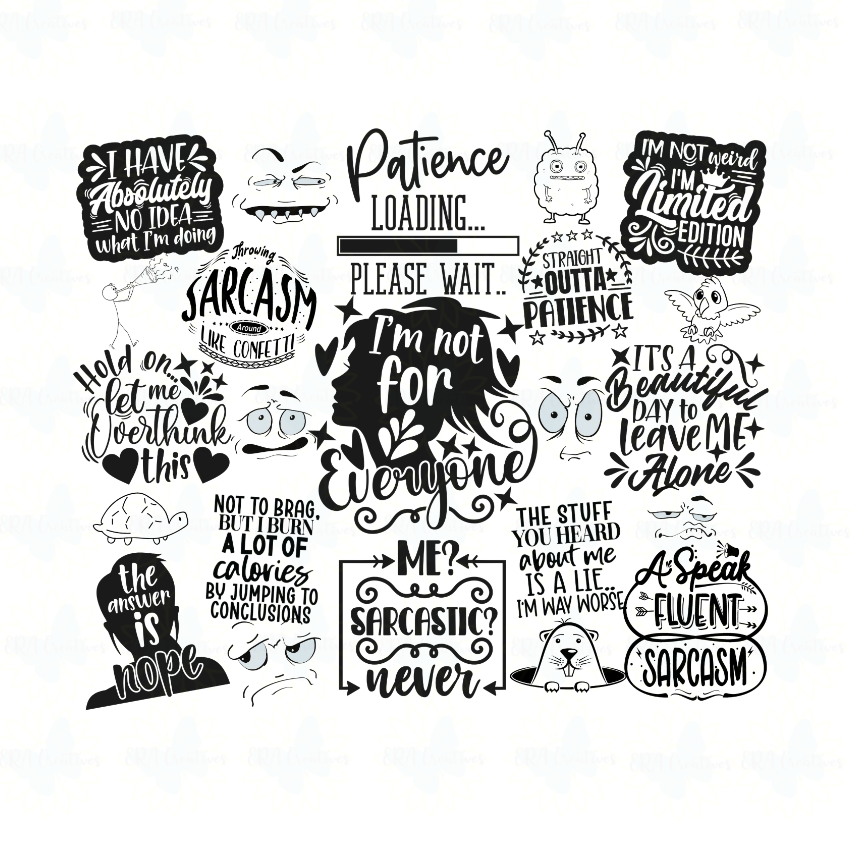 I HAVE
Absolutely
NO IDEA
what I'm doing
Patience
LOADING...
PLEASE WAIT..
I'M NOT weird
I'M
Limited
EDITION
Throwing
SARCASM
Around
LIKE CONFETTI!
STRAIGHT
OUTTA
PATIENCE
I'm not
for
Everyone
Hold on...
let me
Overthink
this
IT'S A
Beautiful
DAY to
leave ME
Alone
NOT TO BRAG,
BUT I BURN
A LOT OF
calories
BY JUMPING TO
CONCLUSIONS
THE STUFF
YOU HEARD
about me
IS A LIE...
I'M WAY WORSE
the
answer
is
nope
ME?
SARCASTIC?
never
A Speak
FLUENT
SARCASM